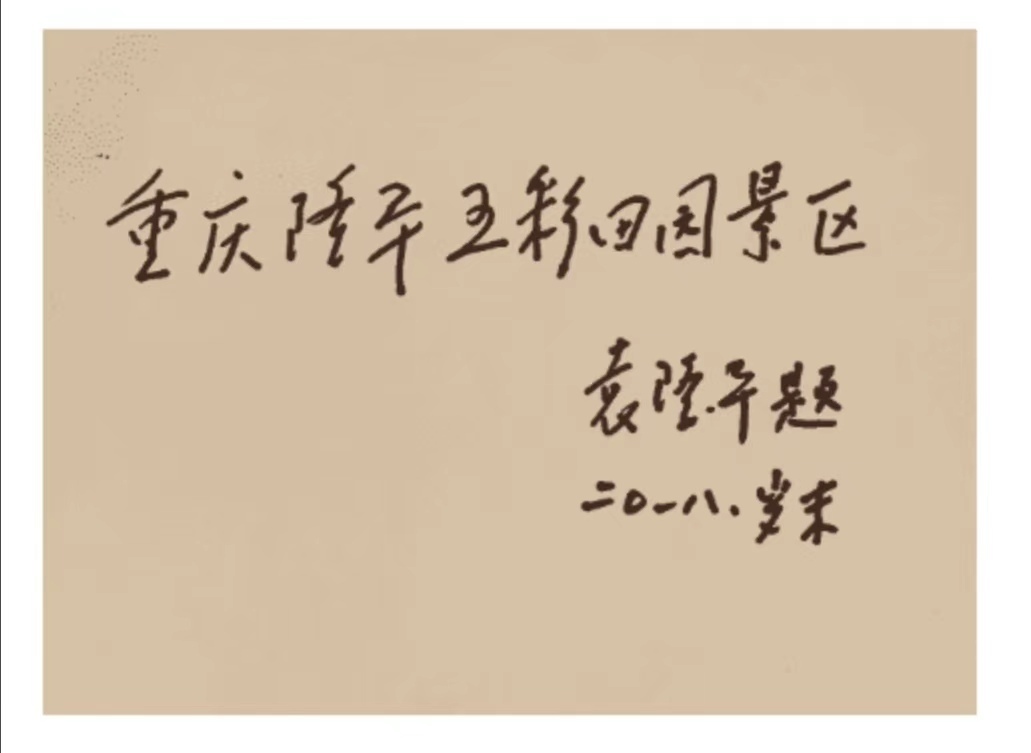 重庆隆平五彩田园景区
袁隆平题
二〇一八.岁末